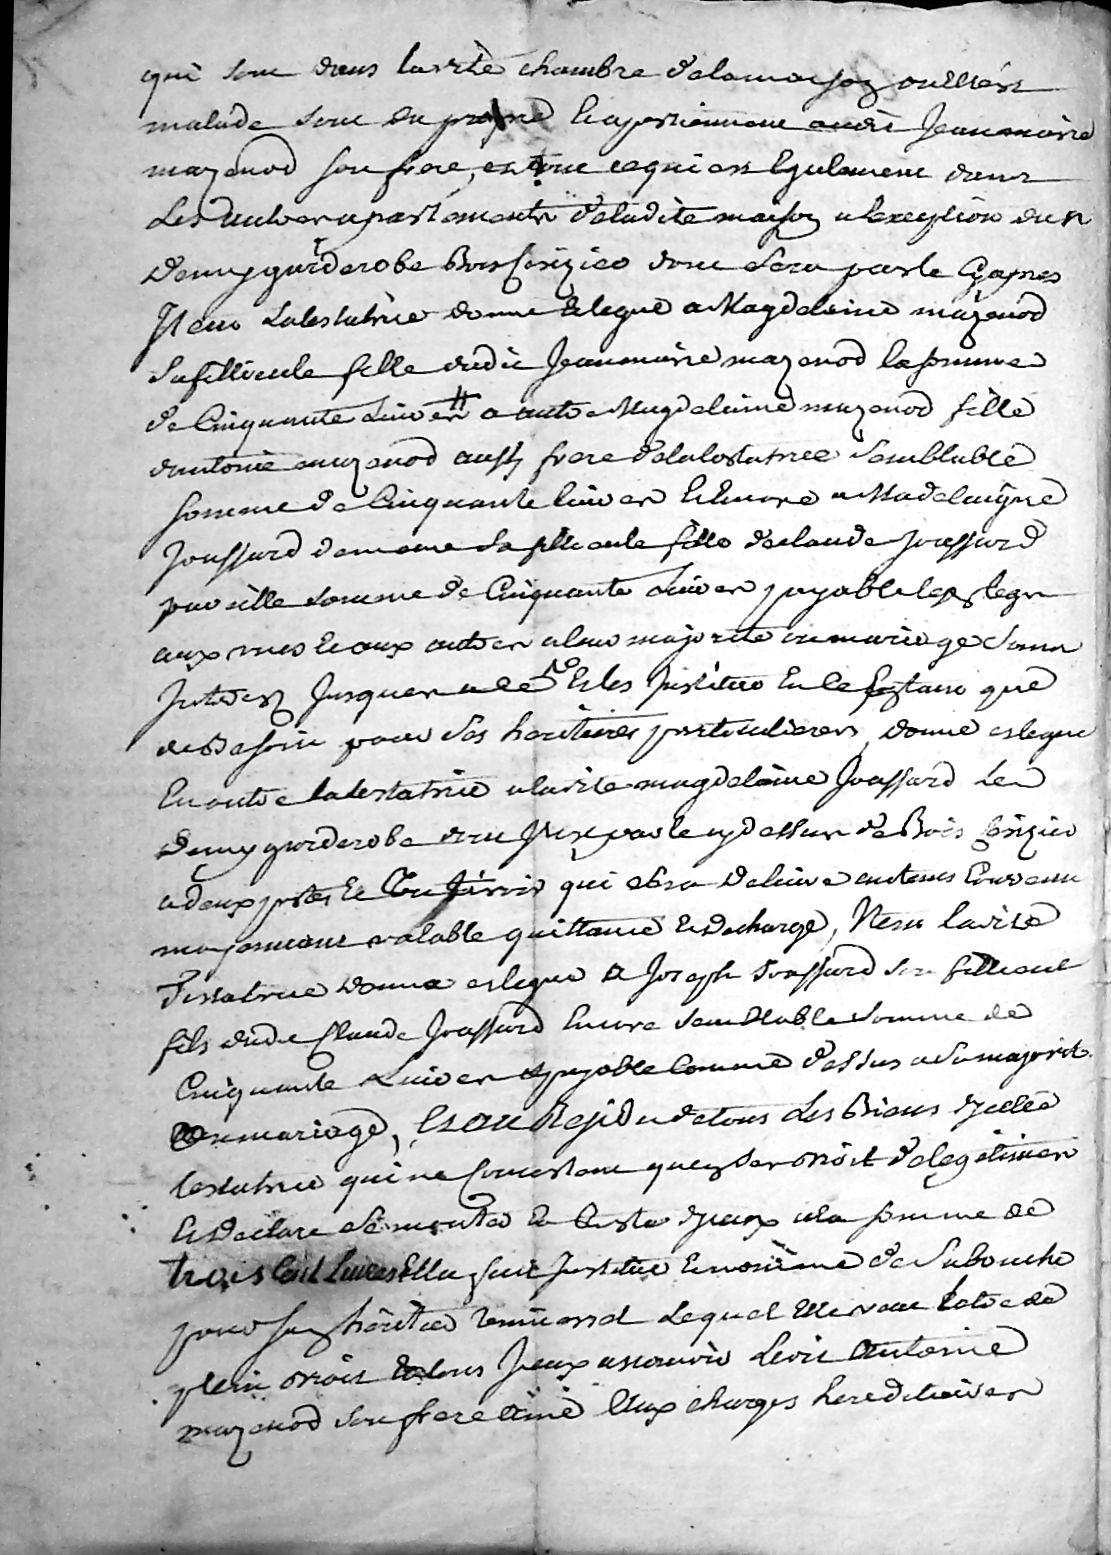 qui sont dans ladite chambre de la maison ou elle est
malade sont du propre et apartiennent audit Jean marie
mazenod son frere, et tout ce qui est egalement dans
les autres apartements de ladite maison a lexeption dun
demy garderobe Bois cerizier dont sera parlé cy apres
Item la testatrice donne et legue a Magdelaine mazenod
sa fillieule fille dudit Jean marie mazenod la somme
de Cinquante Livres a autre Magdelaine mazenod fille
dantoine mazenod aussy frere de la testatrice semblable
somme de Cinquante livres et Encore a Madelaigne
Jouffard de meme sa fillieule fille de claude Jouffard
pareille somme de Cinquante Livres payable les legs
aux unes et aux autres a leur majorité ou mariage sans
Interest Jusques a ce et les Institue En ce faisant que
de besoin pour ses heritieres particulieres, donne et legue
En outre la testatrice a ladite magdelaine Jouffard le
demy garderobe dont Il est parlé cy dessus de Bois cerizier
a deux portes et qui sera delivré au tems
moyennant valable quittance et decharge, Item ladite
Testatrice donne et legue a Joseph Jouffard son fillieul
fils dudit Claude Jouffard Encore semblable somme de
Cinquante Livres payable comme dessus a sa majorité
ou mariage, Et au Residu de tous les Biens dycelle
testatrice qui ne consistent quen ses droits de legitimes
et declare se monter le reste dyceux a la somme de
trois Cent Livres Elle fait Institue et nomme de sa bouche
pour son heritier universel lequel Elle veut Estre de
plein droit de tous Iceux assavoir ledit Antoine
mazenod son frere ainé aux charges hereditaires